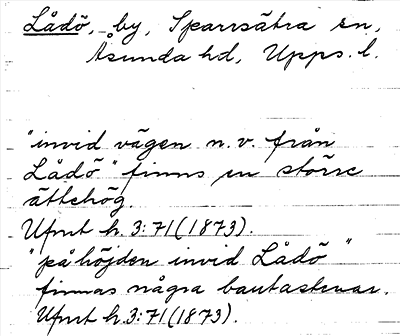 Lådö, by, Sparrsätra sn,
Åsunda hd, Upps. l.
"invid vägen n.v. från
Lådö" finns en större
ättehög.
Upmt h. 3:71(1873).
"på höjden invid Lådö"
finnas några bautastenar.
Upmt h.3:71(1873).